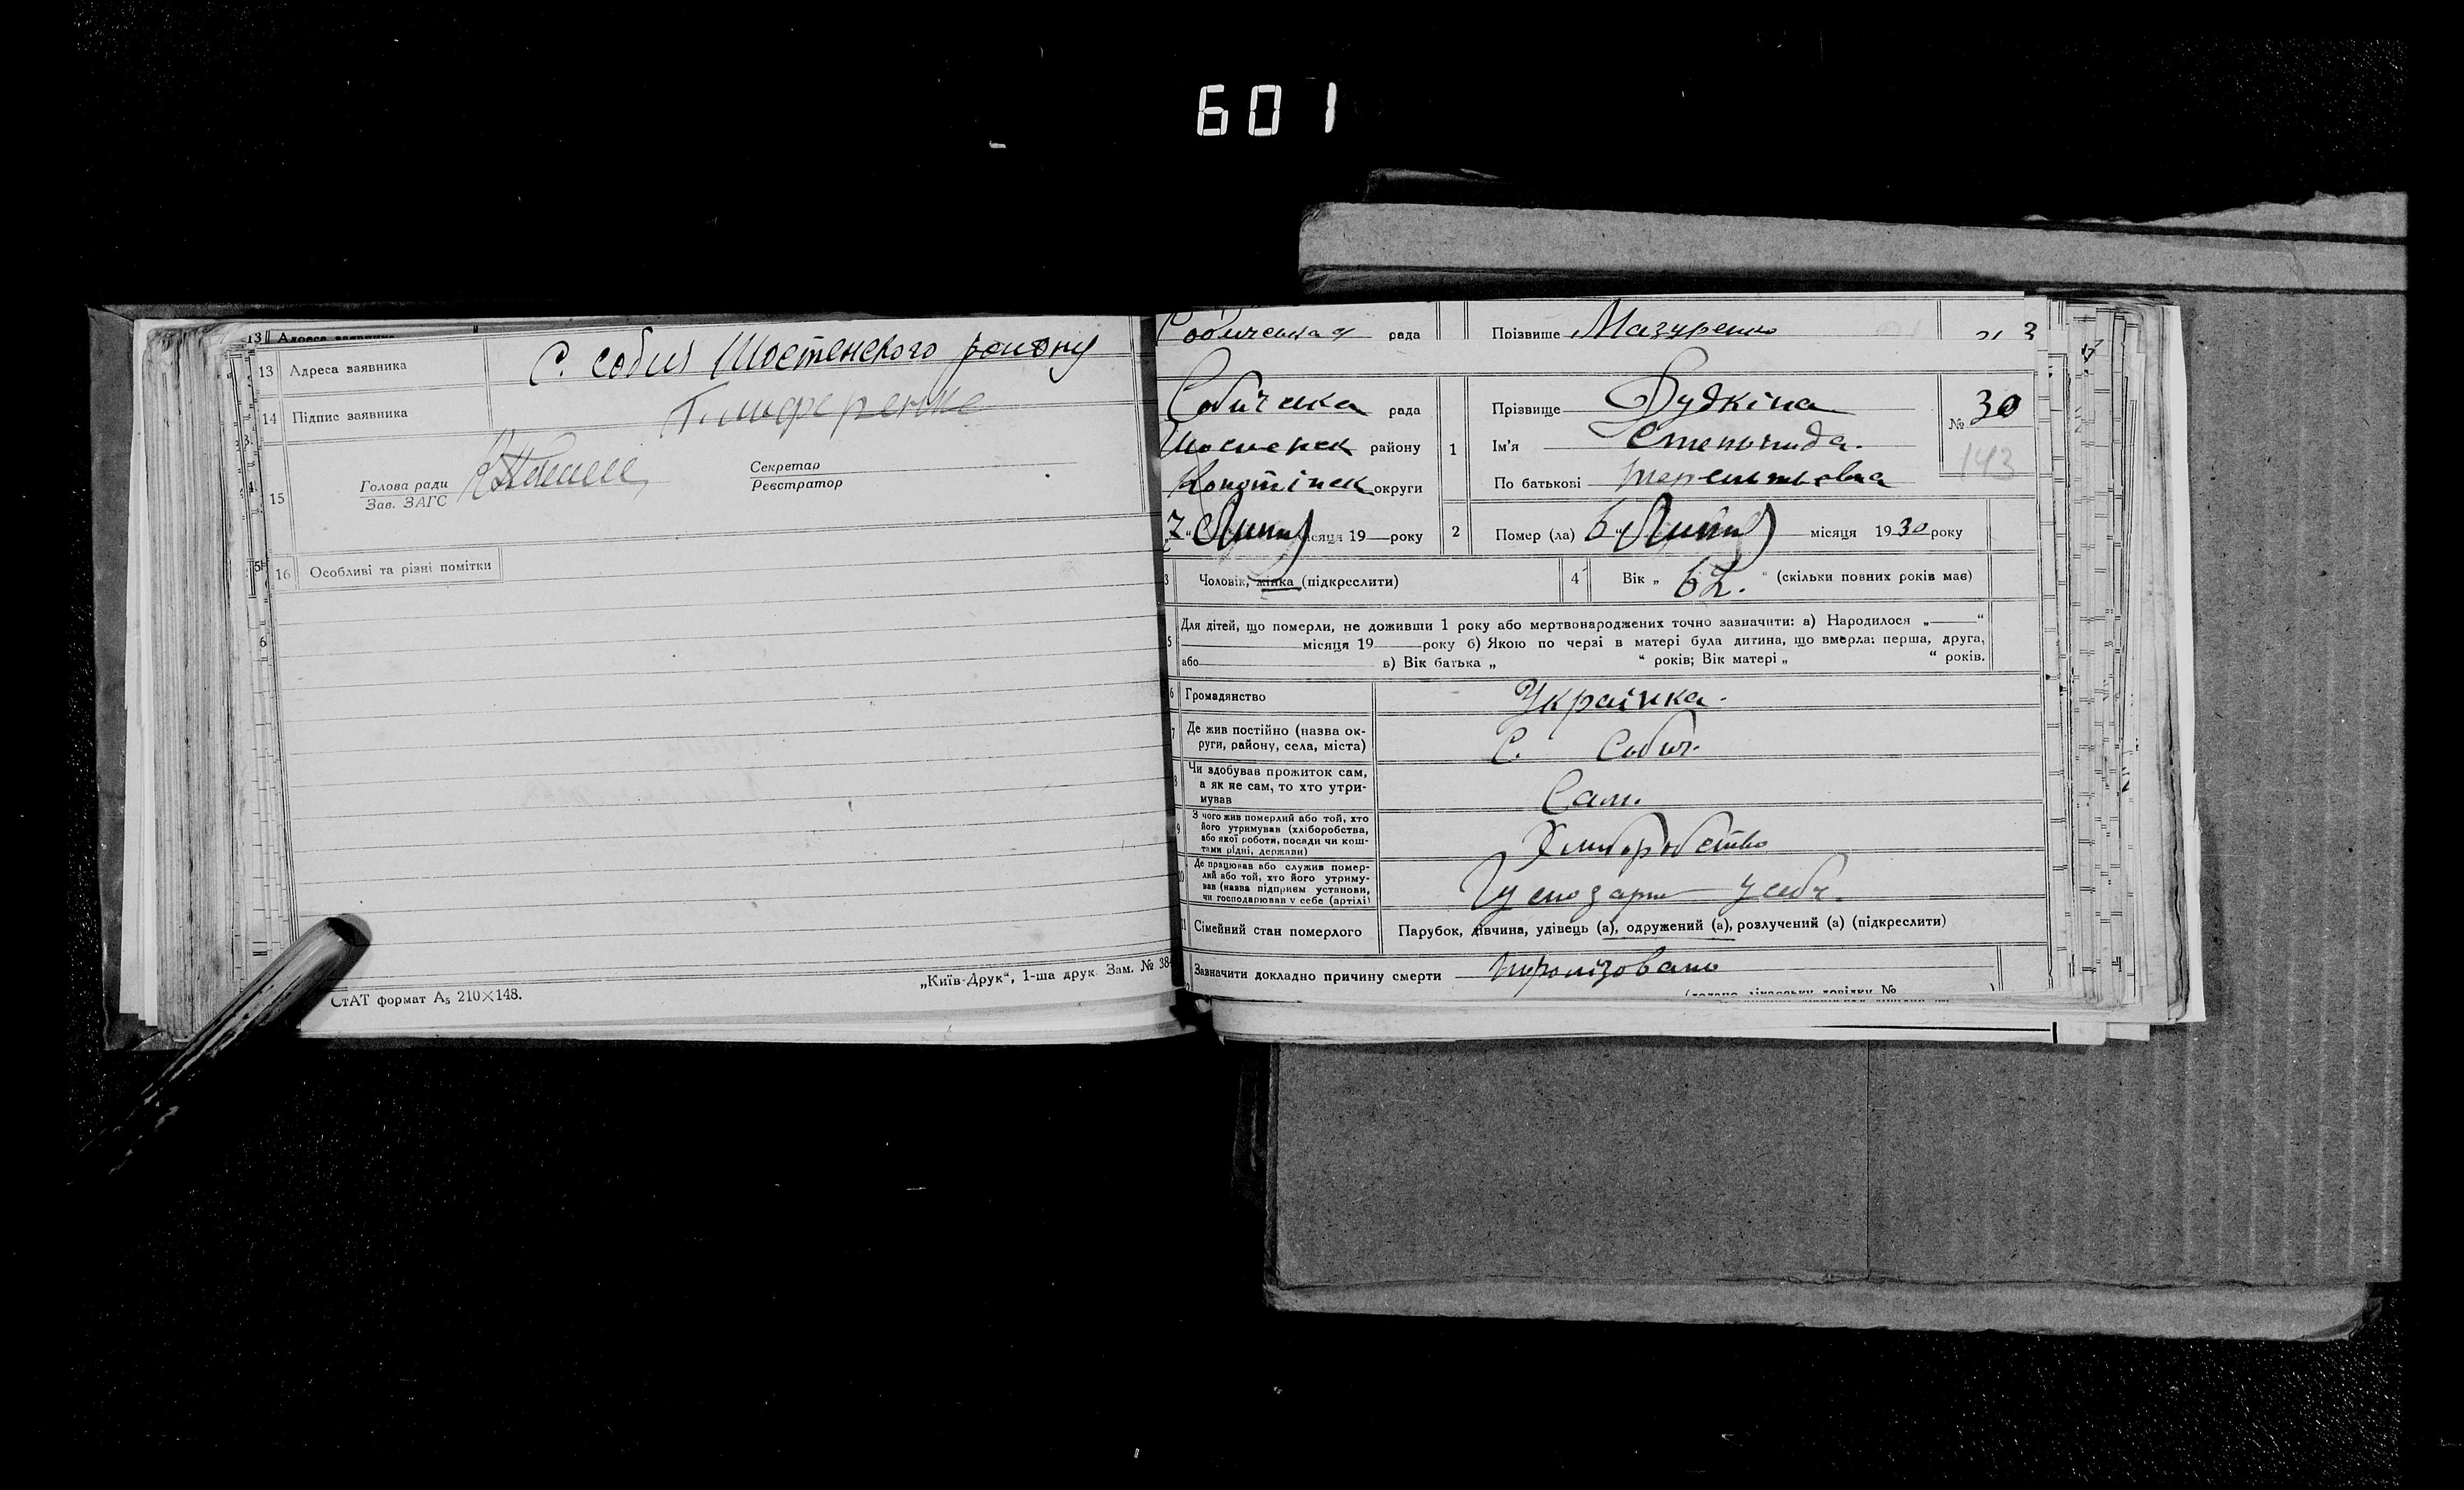 601
13 Адреса заявника
13 Адреса заявника С. Собич Шостенского району
14 Підпис заявника
15 Голова ради Зав. ЗАГС Секретар Реєстратор
16 Особливі та різні помітки
СтАТ формат А₅ 210×148.
„Київ-Друк“, 1-ша друк. Зам. № 384
рада Прізвище Мазуренко
Собичська рада Прізвище Будкіна № 30
району 1 Ім'я Степанида. 143
Конотіпск округи По батькові Терентьовна
7 " Липня місяця 19 року 2 Помер (ла) 6 " Липня місяця 1930 року
3 Чоловік, жінка (підкреслити) 4 Вік „ 62. “ (скільки повних років має)
5 Для дітей, що померли, не доживши 1 року або мертвонароджених точно зазначити: а) Народилося „ “
місяця 19 року б) Якою по черзі в матері була дитина, що вмерла: перша, друга,
або в) Вік батька „ “ років; Вік матері „ “ років.
6 Громадянство Українка.
7 Де жив постійно (назва ок-
руги, району, села, міста) С. Собич.
8 Чи здобував прожиток сам,
а як не сам, то хто утри-
мував Сам.
9 З чого жив померлий або той, хто
його утримував (хліборобства,
або якої роботи, посади чи кош-
тами рідні, держави) Хліборобство
10 Де працював або служив помер-
лий або той, хто його утриму-
вав (назва підприєм установи,
чи господарював у себе (артілі)
11 Сімейний стан померлого Парубок, дівчина, удівець (а), одружений (а), розлучений (а) (підкреслити)
Зазначити докладно причину смерти
(додано лікарську довідку № )